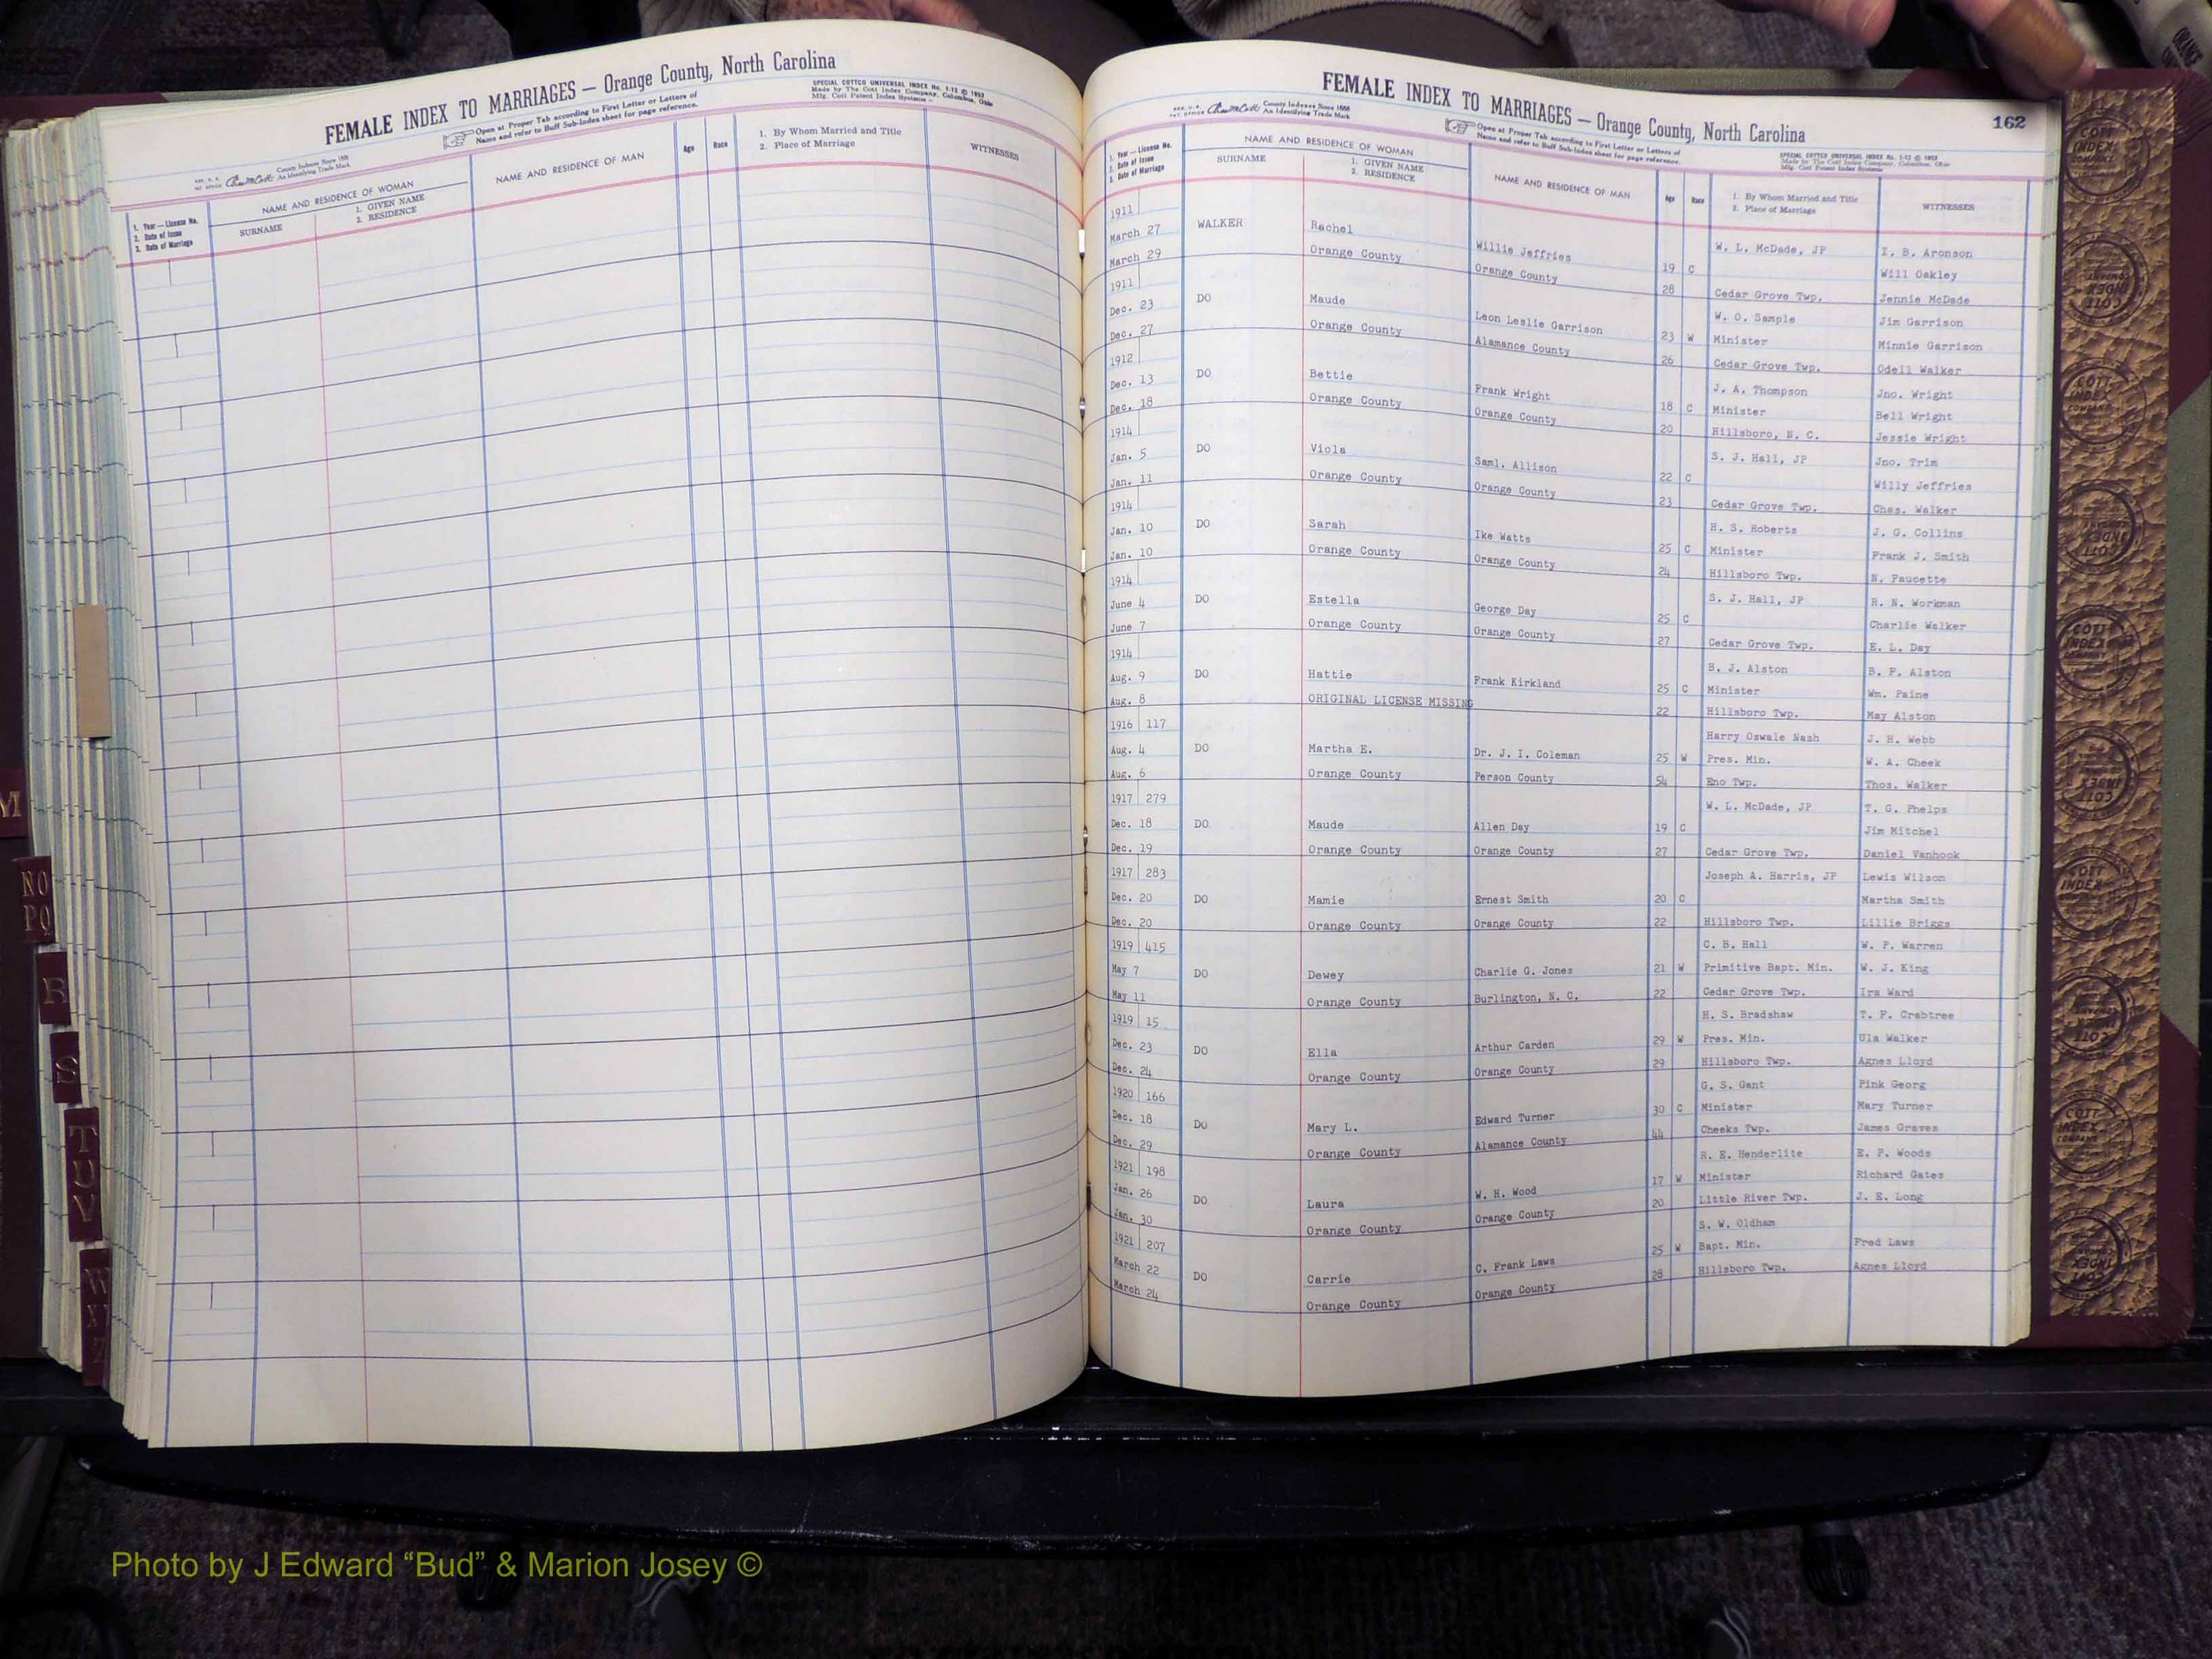 FEMALE INDEX TO MARRIAGES — Orange County, North Carolina
Open at Proper Tab according to First Letter or Letters of
Name and refer to Buff Sub-Index sheet for page reference.
SPECIAL COTTCO UNIVERSAL INDEX No. 1-12 © 1953
Made by The Cott Index Company, Columbus, Ohio
Mfg. Cott Patent Index Systems
County Indexes Since 1888
An Identifying Trade Mark
1. Year — License No.
2. Date of Issue
3. Date of Marriage
NAME AND RESIDENCE OF WOMAN
SURNAME
1. GIVEN NAME
2. RESIDENCE
NAME AND RESIDENCE OF MAN
Age
Race
1. By Whom Married and Title
2. Place of Marriage
WITNESSES
FEMALE INDEX TO MARRIAGES — Orange County, North Carolina
162
County Indexes Since 1888
An Identifying Trade Mark
Open at Proper Tab according to First Letter or Letters of
Name and refer to Buff Sub-Index sheet for page reference.
SPECIAL COTTCO UNIVERSAL INDEX No. 1-12 © 1953
Made by The Cott Index Company, Columbus, Ohio
Mfg. Cott Patent Index Systems
1. Year — License No.
2. Date of Issue
3. Date of Marriage
NAME AND RESIDENCE OF WOMAN
SURNAME
1. GIVEN NAME
2. RESIDENCE
NAME AND RESIDENCE OF MAN
Age
Race
1. By Whom Married and Title
2. Place of Marriage
WITNESSES
1911 W. L. McDade, JP I. B. Aronson
March 27 WALKER Rachel Willie Jeffries 19 C Will Oakley
March 29 Orange County Orange County 28 Cedar Grove Twp. Jennie McDade
1911 W. O. Sample Jim Garrison
Dec. 23 DO Maude Leon Leslie Garrison 23 W Minister Minnie Garrison
Dec. 27 Orange County Alamance County 26 Cedar Grove Twp. Odell Walker
1912 J. A. Thompson Jno. Wright
Dec. 13 DO Bettie Frank Wright 18 C Minister Bell Wright
Dec. 18 Orange County Orange County 20 Hillsboro, N. C. Jessie Wright
1914 S. J. Hall, JP Jno. Trim
Jan. 5 DO Viola Saml. Allison 22 C Willy Jeffries
Jan. 11 Orange County Orange County 23 Cedar Grove Twp. Chas. Walker
1914 H. S. Roberts J. G. Collins
Jan. 10 DO Sarah Ike Watts 25 C Minister Frank J. Smith
Jan. 10 Orange County Orange County 24 Hillsboro Twp. N. Faucette
1914 S. J. Hall, JP R. N. Workman
June 4 DO Estella George Day 25 C Charlie Walker
June 7 Orange County Orange County 27 Cedar Grove Twp. E. L. Day
1914 B. J. Alston B. F. Alston
Aug. 9 DO Hattie Frank Kirkland 25 C Minister Wm. Paine
Aug. 8 ORIGINAL LICENSE MISSING 22 Hillsboro Twp. May Alston
1916 117 Harry Oswale Nash J. H. Webb
Aug. 4 DO Martha E. Dr. J. I. Coleman 25 W Pres. Min. W. A. Cheek
Aug. 6 Orange County Person County 54 Eno Twp. Thos. Walker
1917 279 W. L. McDade, JP T. G. Phelps
Dec. 18 DO Maude Allen Day 19 C Jim Mitchel
Dec. 19 Orange County Orange County 27 Cedar Grove Twp. Daniel Vanhook
1917 283 Joseph A. Harris, JP Lewis Wilson
Dec. 20 DO Mamie Ernest Smith 20 C Martha Smith
Dec. 20 Orange County Orange County 22 Hillsboro Twp. Lillie Briggs
1919 415 C. B. Hall W. P. Warren
May 7 DO Dewey Charlie G. Jones 21 W Primitive Bapt. Min. W. J. King
May 11 Orange County Burlington, N. C. 22 Cedar Grove Twp. Ira Ward
1919 15 H. S. Bradshaw T. F. Crabtree
Dec. 23 DO Ella Arthur Carden 29 W Pres. Min. Ula Walker
Dec. 24 Orange County Orange County 29 Hillsboro Twp. Agnes Lloyd
1920 166 G. S. Gant Pink Georg
Dec. 18 DO Mary L. Edward Turner 30 C Minister Mary Turner
Dec. 29 Orange County Alamance County 44 Cheeks Twp. James Graves
1921 198 R. E. Henderlite E. P. Woods
Jan. 26 DO Laura W. H. Wood 17 W Minister Richard Gates
Jan. 30 Orange County Orange County 20 Little River Twp. J. E. Long
1921 207 S. W. Oldham
March 22 DO Carrie C. Frank Laws 25 W Bapt. Min. Fred Laws
March 24 Orange County Orange County 28 Hillsboro Twp. Agnes Lloyd
M
NO
PQ
R
S
T
U
V
W
COTT
INDEX
COMPANY
Photo by J Edward “Bud” & Marion Josey ©